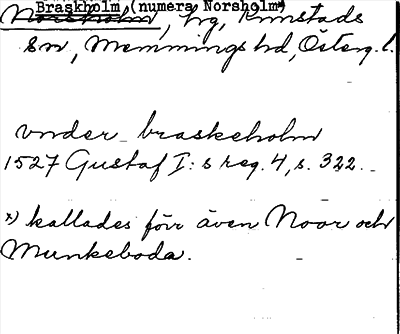 Braskholm (numera Norsholm*)
Norsholm, hg, Kimstads
sn, Memmings hd, Österg. l.
vnder braskeholm
1527 Gustaf I:s reg. 4, s. 322.
x) kallades förr även Noor och
Munkeboda.